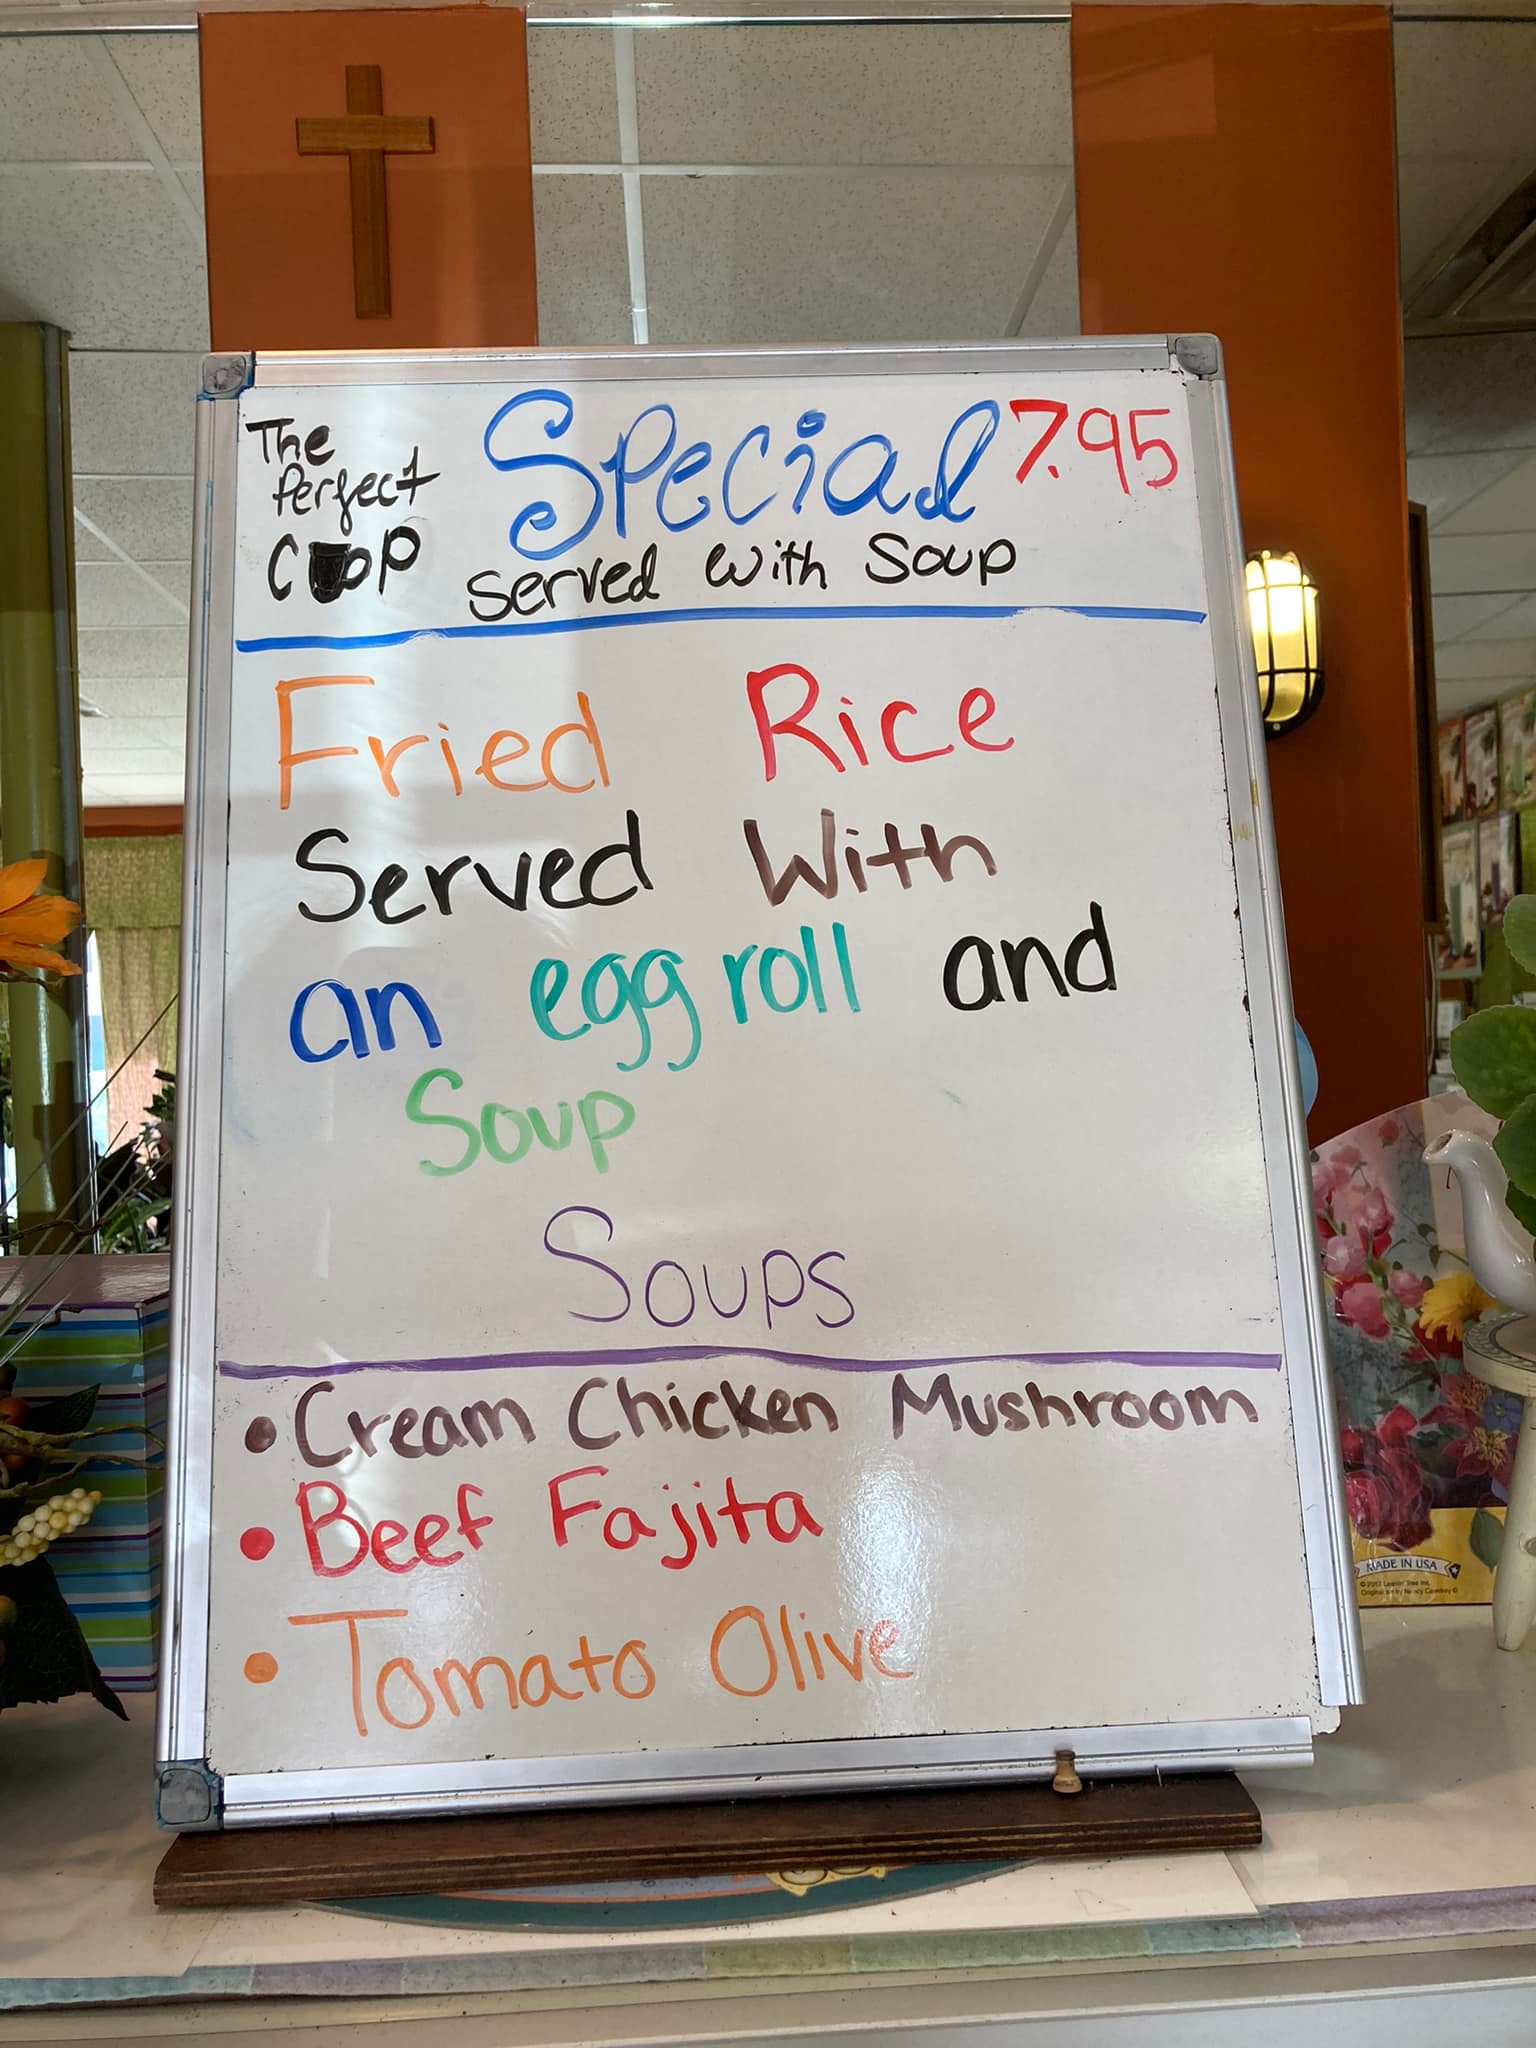 The
Perfect
Special 7.95
served with Soup
Fried Rice
Served With
an egg roll and
Soup
Soups
• Cream Chicken Mushroom
• Beef Fajita
• Tomato Olive
MADE IN USA